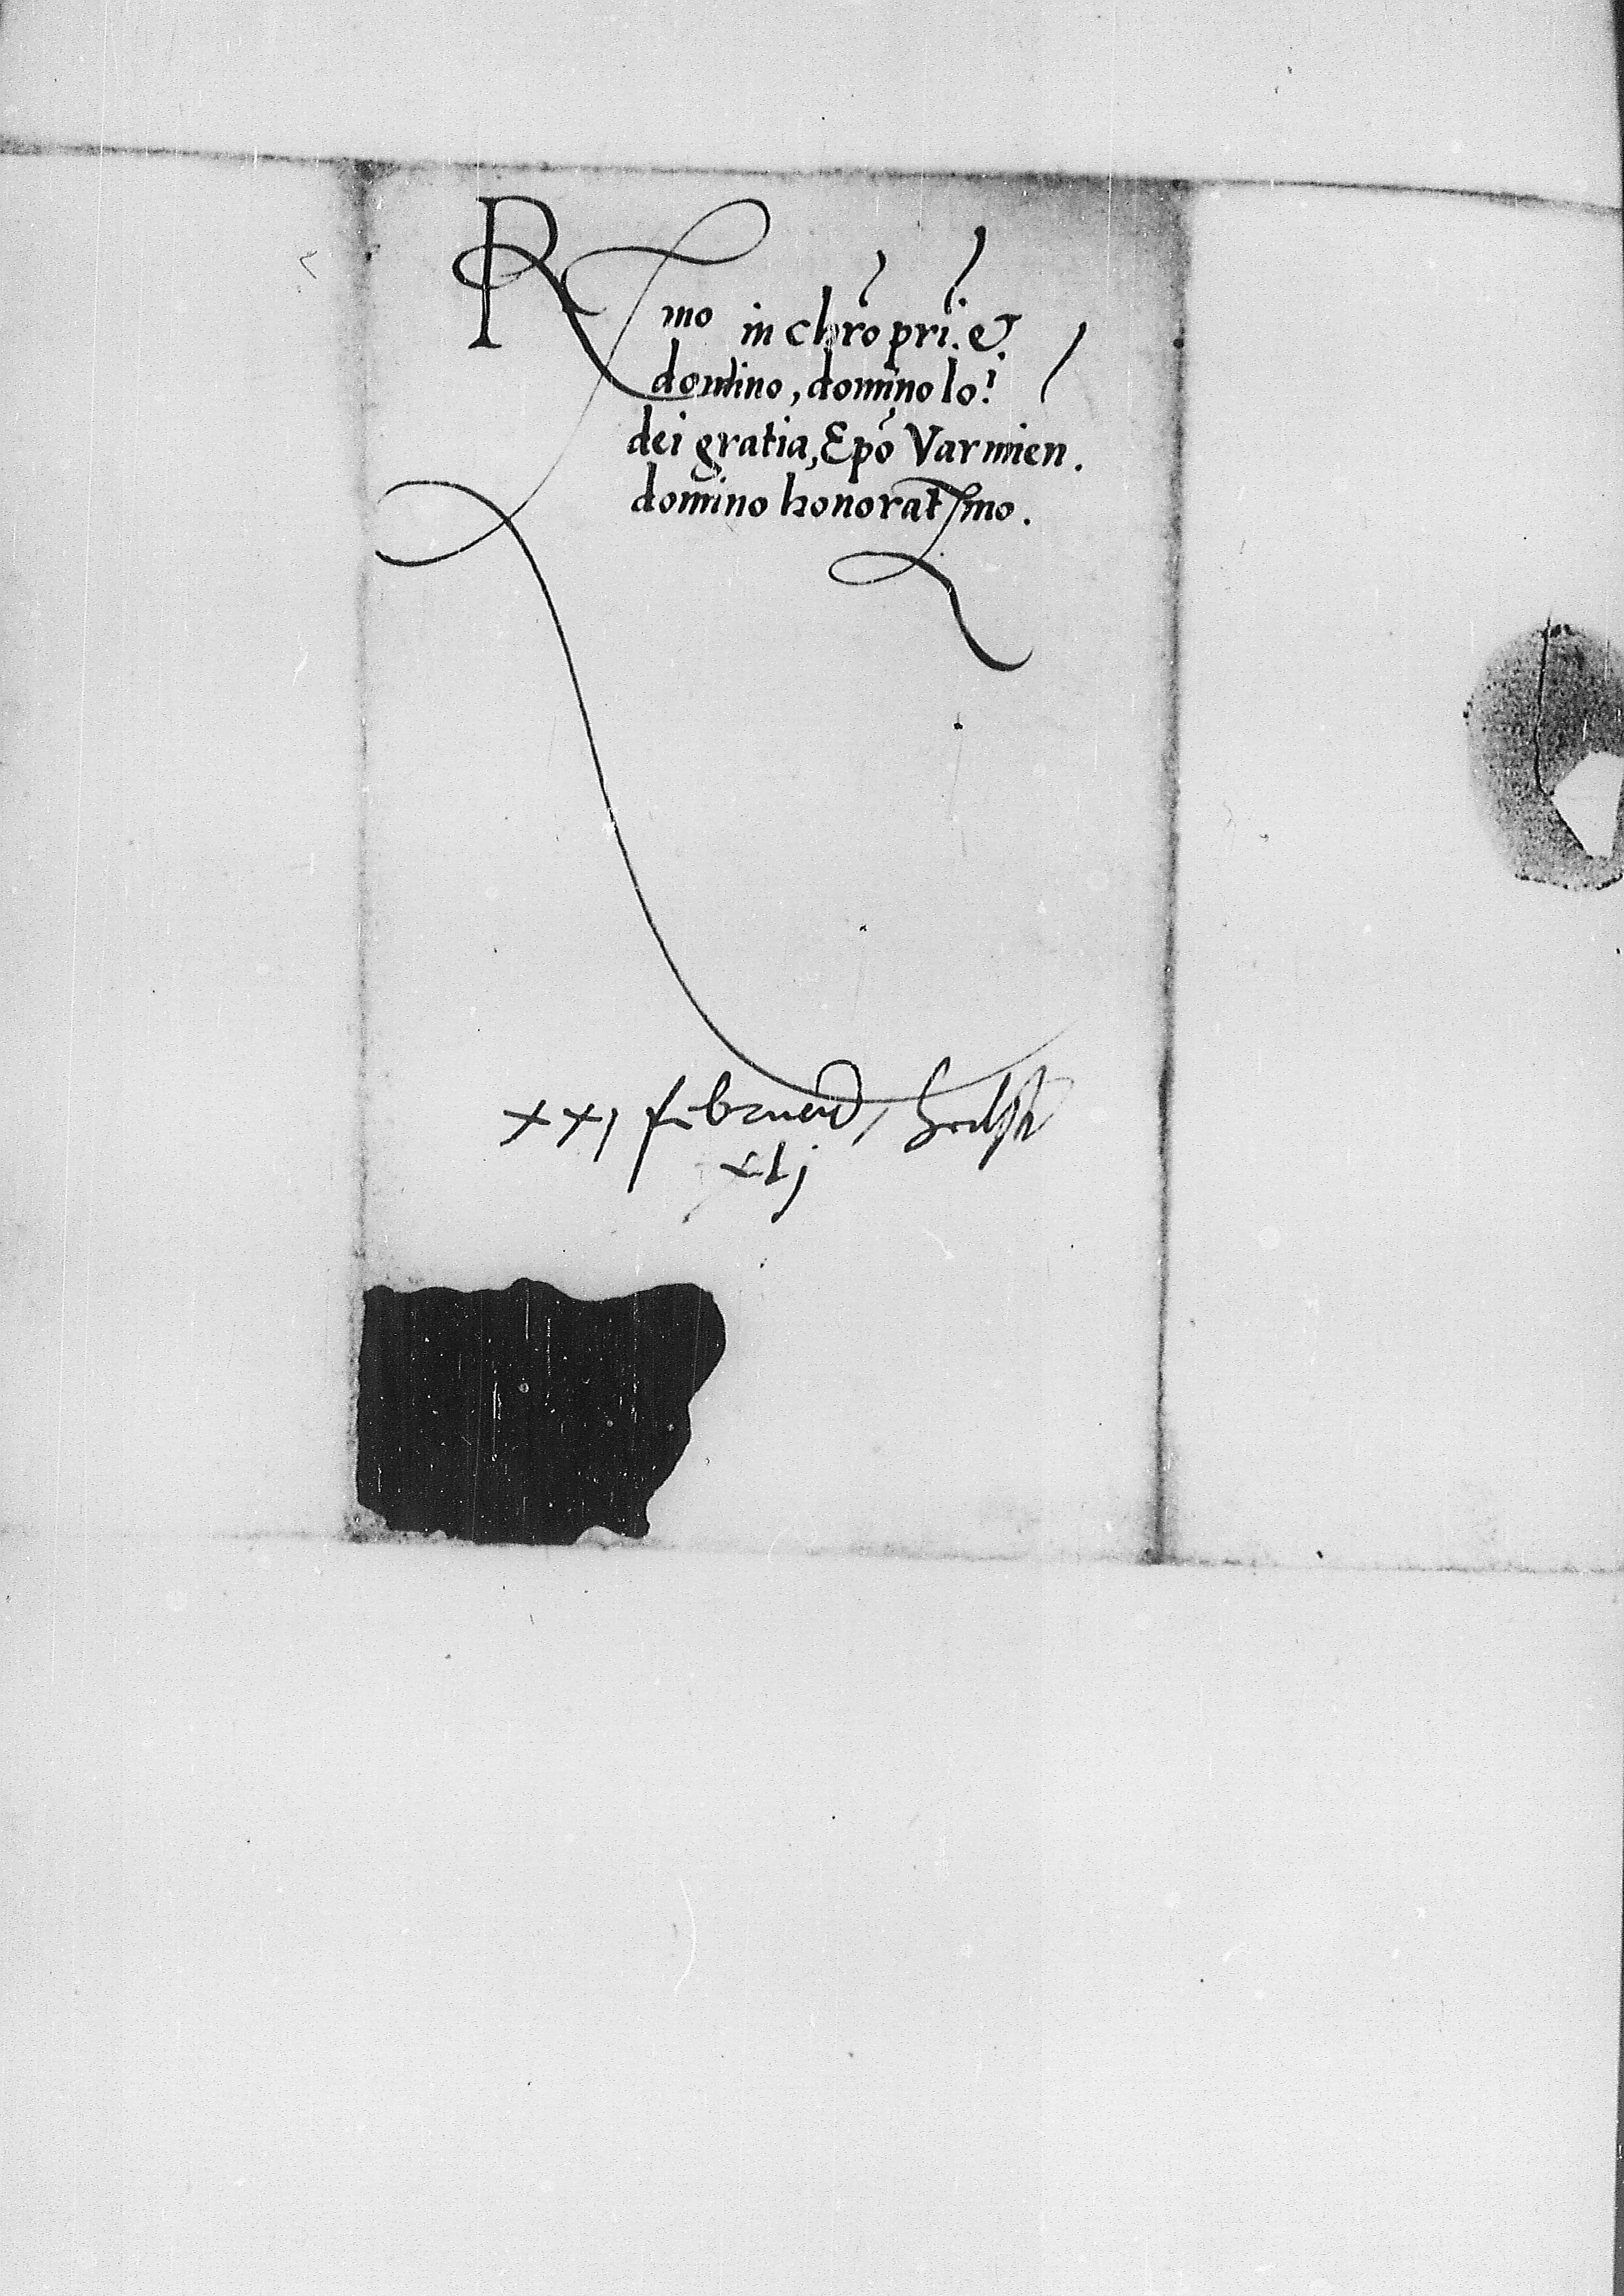 Rmo in chr̄o pr̄i. et
domino, domino Io.
dei gratia, Ep̄o Varmien.
domino honoratmo.
xxj februarij
xlj